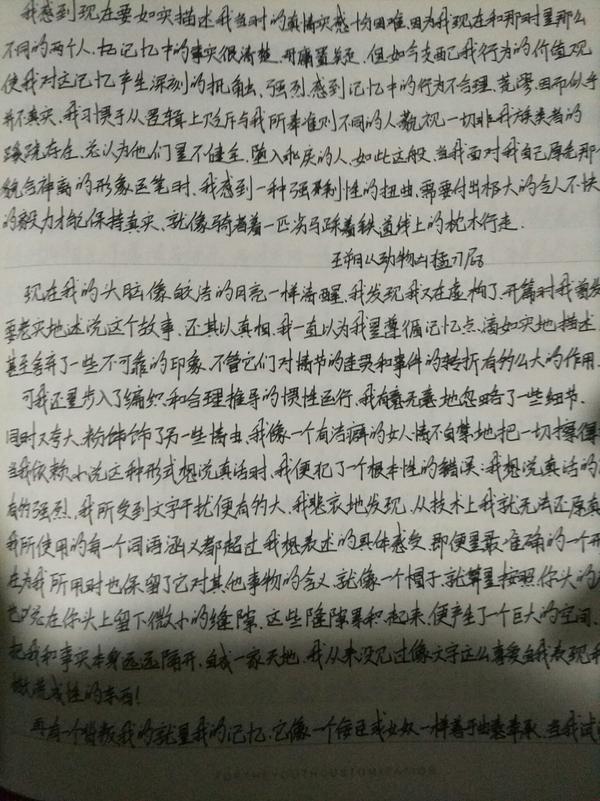 我感到现在要如实描述我当时的真情实感十分困难,因为我现在和那时是那么
不同的两个人.记忆中的事实很清楚,毋庸置疑.但如今支配我行为的价值观
使我对这记忆产生深刻的抵触.强烈感到记忆中的行为不合理.荒谬.因而似乎
并不真实.我习惯于从逻辑上贬斥与我所奉准则不同的人,藐视一切非我族类者的
蹊跷存在.总认为他们是不健全,堕入乖戾的人.如此这般,当我面对我自己原先那个
貌合神离的形象运笔时.我感到一种强制性的扭曲.需要付出极大的令人不快
的毅力才能保持真实.就像骑着一匹劣马踩着铁道线上的枕木行走.
王朔《动物凶猛》
现在我的头脑像皎洁的月亮一样清醒.我发现我又在虚构了.开篇时我曾发
要老实地述说这个故事.还其以真相.我一直以为我是遵循记忆点滴如实地描述.
甚至舍弃了一些不可靠的印象.不管它们对情节的连贯和事件的转折有多么大的作用.
可我还是步入了编织和合理推导的惯性运行.我有意无意地忽略了一些细节.
同时又夸大.粉饰了另一些情由.我像一个有洁癖的女人情不自禁地把一切擦得
当我依赖小说这种形式想说真话时.我便犯了一个根本性的错误:我想说真话的
有多强烈.我所受到文字干扰便有多大.我悲哀地发现.从技术上我就无法还原真
我所使用的每一个词语涵义都超过我想表述的具体感受.即便是最准确的一个形
在为我所用时也保留了它对其他事物的含义.就像一个帽子.就算是按照你头的
也总在你头上留下微小的缝隙.这些缝隙累积起来.便产生了一个巨大的空间.
把我和事实本身远远隔开.自成一家天地.我从来没见过像文字这么喜爱自我表现和
撒谎成性的东西!
再有一个背叛我的就是我的记忆.它像一个佞臣或女奴一样善于曲意奉承.当我试